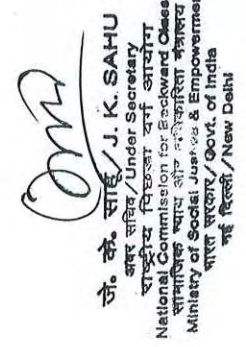 जे. के. साहू/J. K. SAHU
अवर सचिव/Under Secretary
राष्ट्रीय पिछड़ा वर्ग आयोग
National Commission for Backward Class
सामाजिक न्याय और अधिकारिता मंत्रालय
Ministry of Social Justice & Empowermen
भारत सरकार/Govt. of India
नई दिल्ली/New Delhi